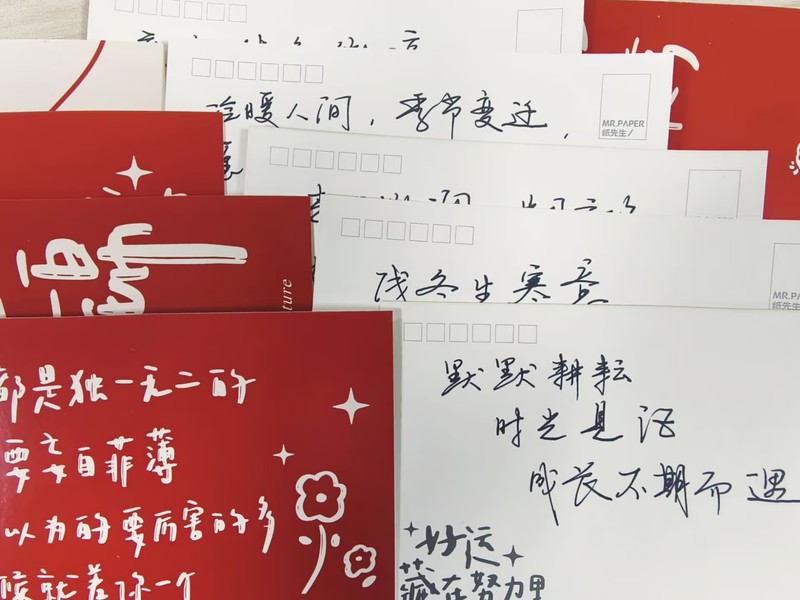 冷暖人间，季节变迁，
MR.PAPER
纸先生/
残冬生寒意
MR.PA
纸先生
ture
默默耕耘
时光见证
成长不期而遇
好运
藏在努力里
都是独一无二的
要妄自菲薄
以为的要厉害的多
候就差你一个